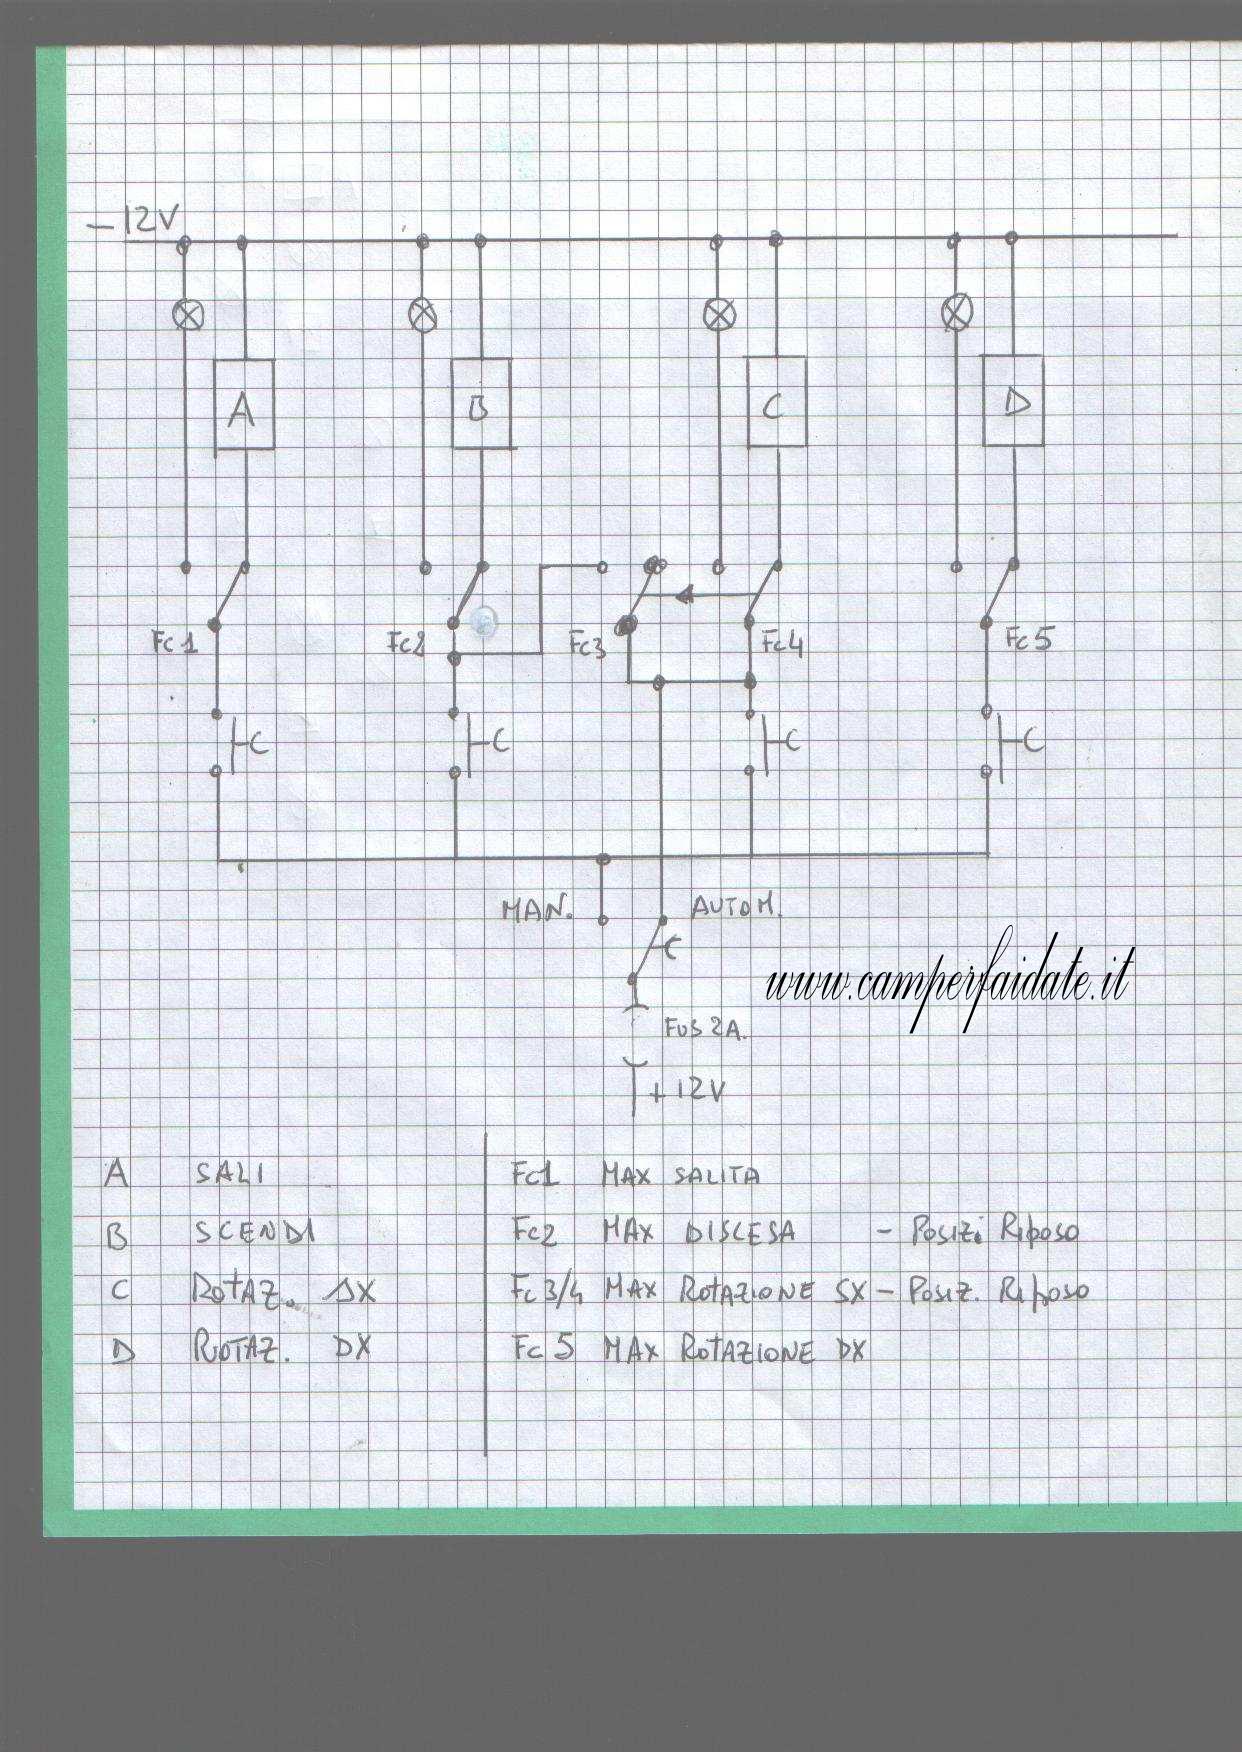 - 12V
A B C D
Fc1 Fc2 Fc3 Fc4 Fc5
C C C C
MAN. AUTOM.
C
www.camperfaidate.it
FUS 2A.
+ 12V
A SALI Fc1 MAX SALITA
B SCENDI Fc2 MAX DISCESA - Posiz. Riposo
C ROTAZ. SX Fc 3/4 MAX ROTAZIONE SX - Posiz. Riposo
D ROTAZ. DX Fc 5 MAX ROTAZIONE DX